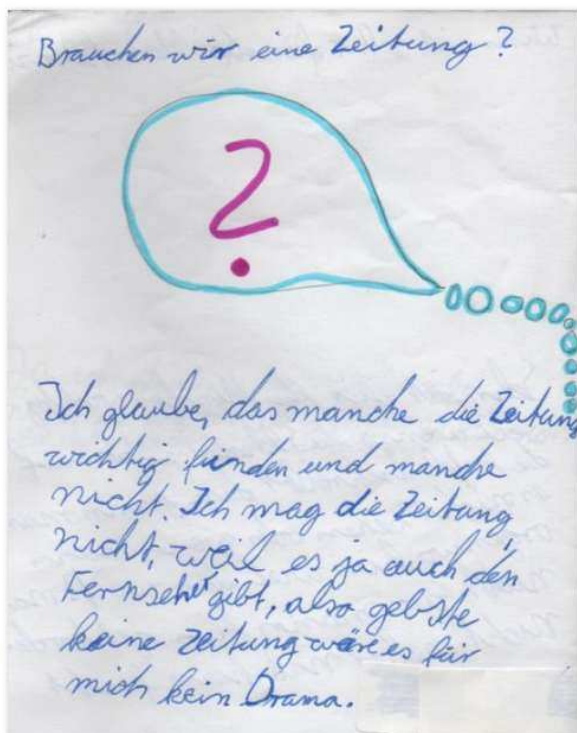 Brauchen wir eine Zeitung?
?
Ich glaube, das manche die Zeitung
wichtig finden und manche
nicht. Ich mag die Zeitung
nicht, weil es ja auch den
Fernseher gibt, also gebste
keine Zeitung wäre es für
mich kein Drama.